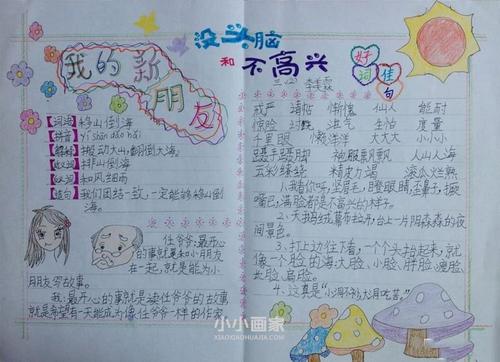 没头脑
和
不高兴
三(2) 李
我的新
朋友
好词佳句
【词语】移山倒海
【拼音】yí shān dǎo hǎi
【解释】搬动大山,翻倒大海。
【近义】排山倒海
【反义】和风细雨
【造句】我们团结一致,一定能够移山倒
海。
任爷爷:最开心
的事就是和小朋友
在一起,就是能为小
朋友写故事。
我:最开心的事就是读任爷爷的故事
就是希望有一天能成为像任爷爷一样的作家
戒严 请帖 惭愧 仙人 能耐
惊险 过瘾 泄气 生怕 度量
千里眼 懒洋洋 大大大 小小小
人山人海
五彩缤纷 精疲力竭 滚瓜烂熟
1、我猪你吗,竖眉毛,瞪眼睛,歪鼻子,撅
嘴巴,满脸都是不高兴的样子。
2、天鹅绒幕布拉开,台上一片阴森森的夜
间景色。
3、打上边往下看,一个个头抬起来,就
像一个脸的海:大脸、小脸、胖脸、瘦脸、
长脸、扁脸。
4、这真是“心澗不物大用吃苦。”
小小画家
XIAOXIAOHUAJIA.COM